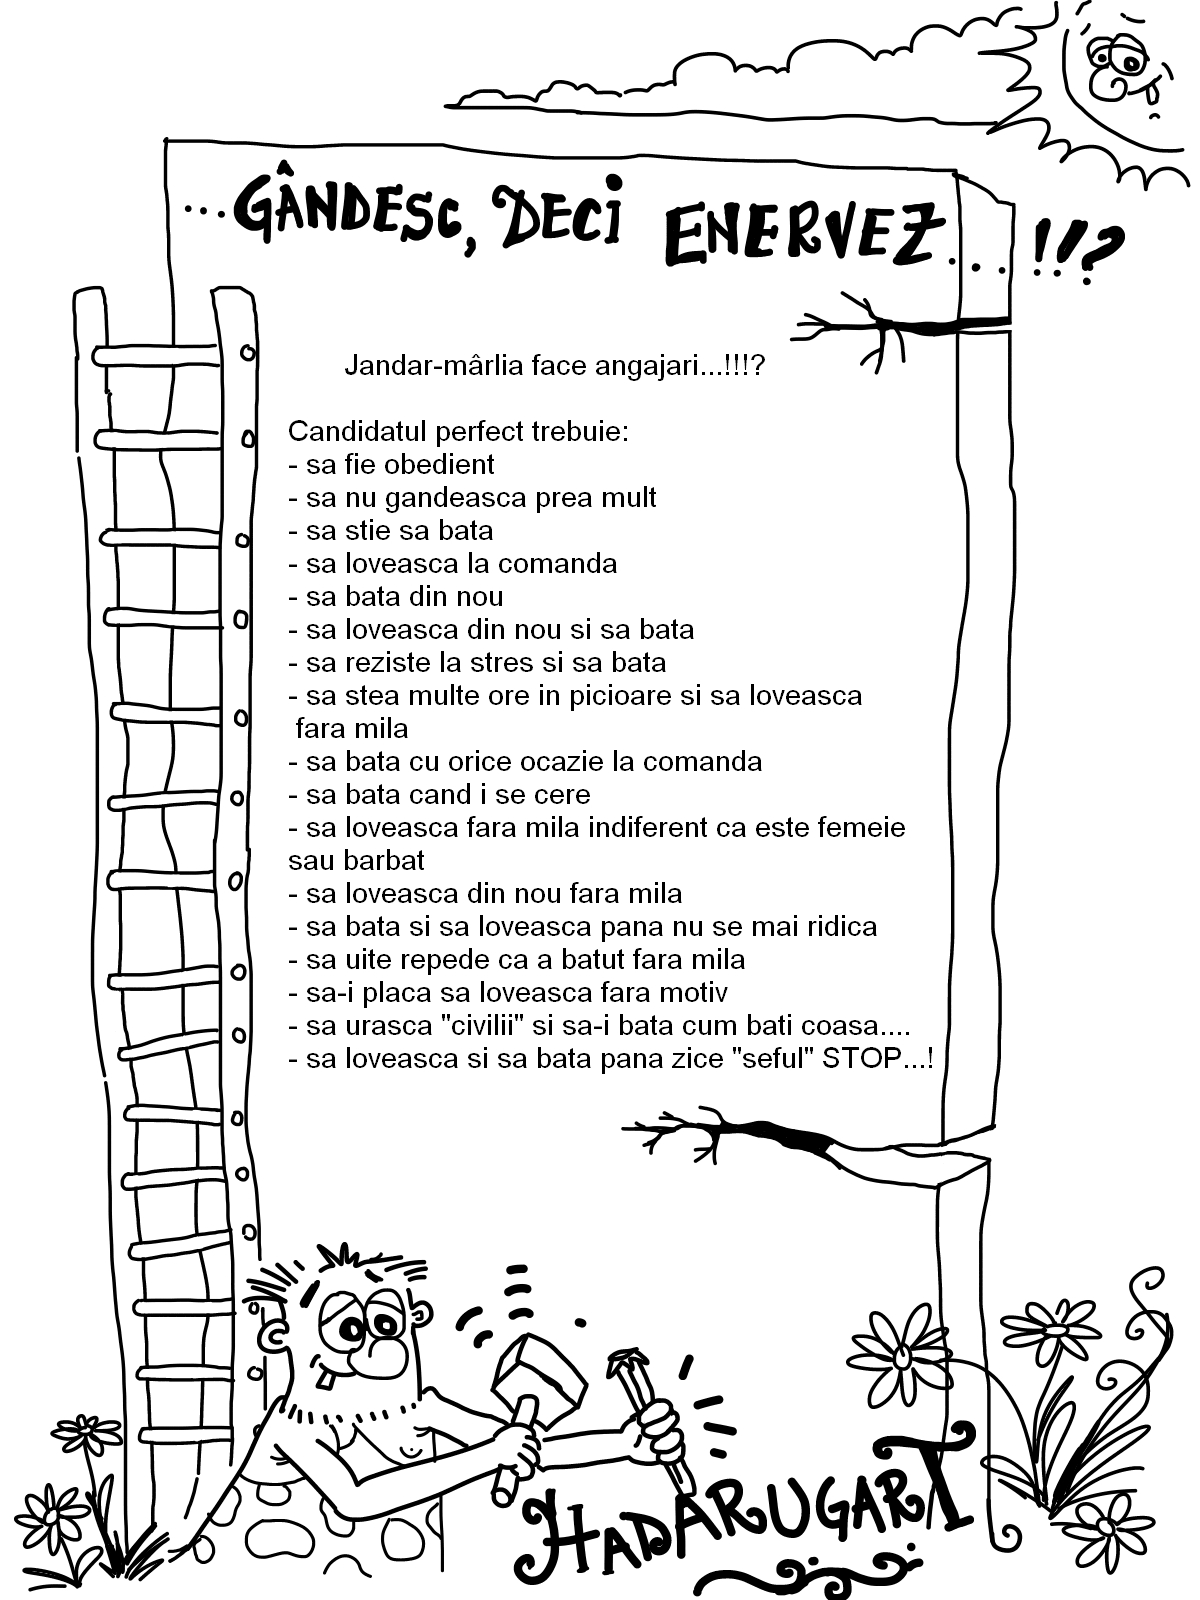 ...GÂNDESC, DECI ENERVEZ...!!?
Jandar-mârlia face angajari...!!!?
Candidatul perfect trebuie:
- sa fie obedient
- sa nu gandeasca prea mult
- sa stie sa bata
- sa loveasca la comanda
- sa bata din nou
- sa loveasca din nou si sa bata
- sa reziste la stres si sa bata
- sa stea multe ore in picioare si sa loveasca
fara mila
- sa bata cu orice ocazie la comanda
- sa bata cand i se cere
- sa loveasca fara mila indiferent ca este femeie
sau barbat
- sa loveasca din nou fara mila
- sa bata si sa loveasca pana nu se mai ridica
- sa uite repede ca a batut fara mila
- sa-i placa sa loveasca fara motiv
- sa urasca "civilii" si sa-i bata cum bati coasa....
- sa loveasca si sa bata pana zice "seful" STOP...!
HADARUGART